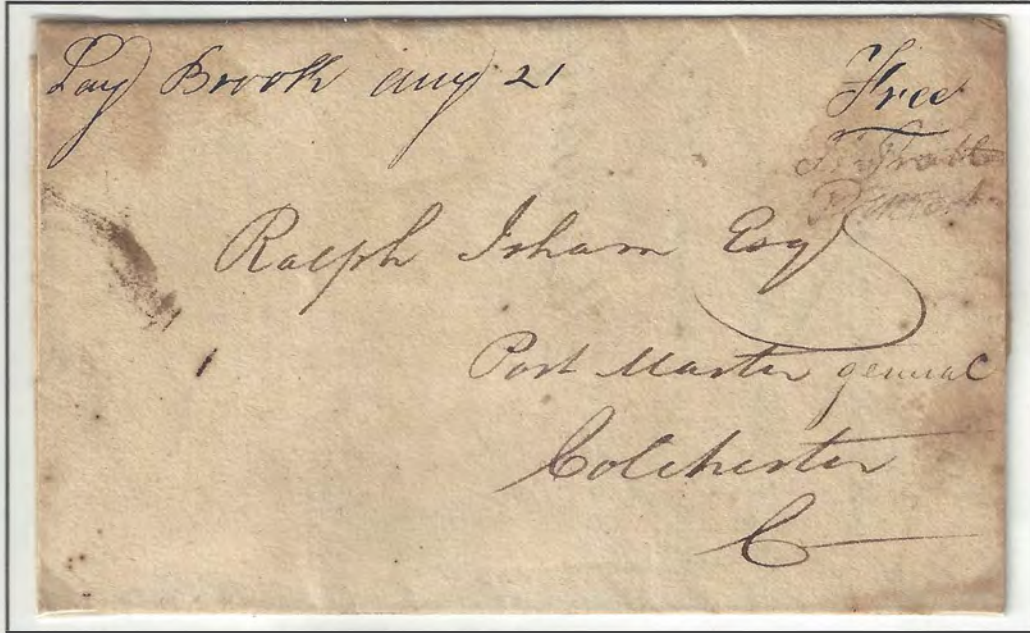 Say Brook aug 21
Free
Ralph Isham Esq
Post Master general
Colchester
C